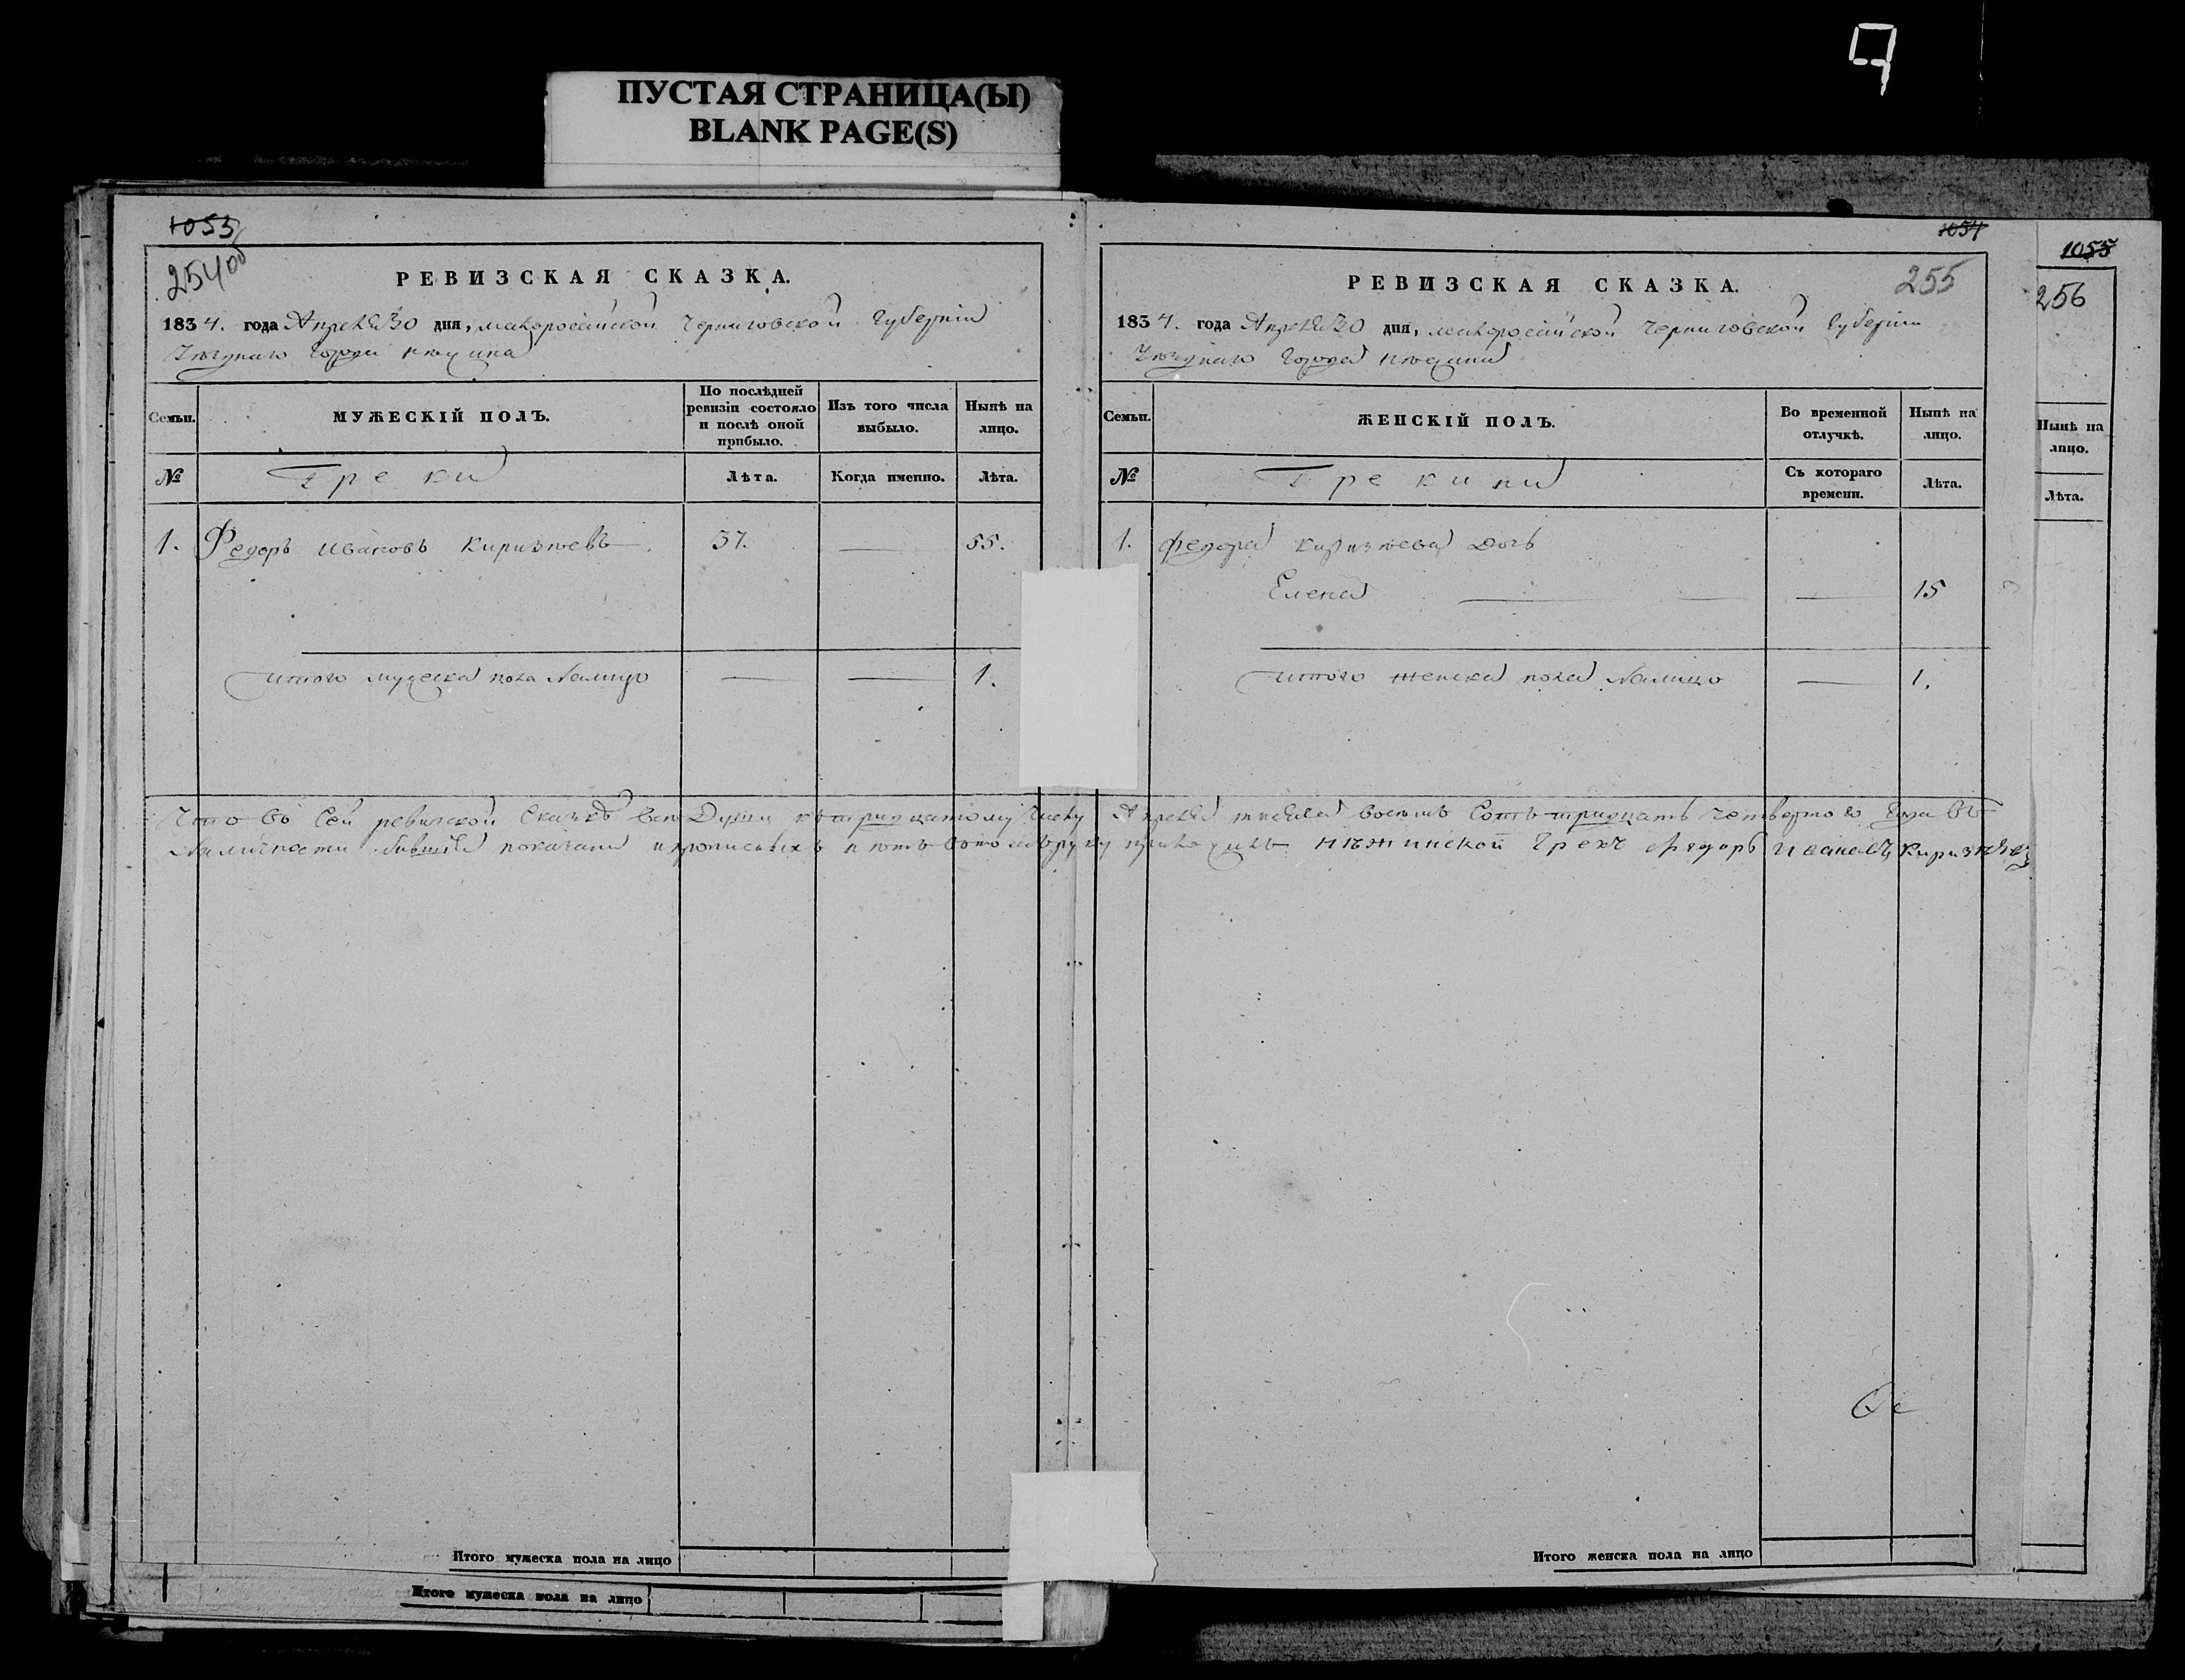 ПУСТАЯ СТРАНИЦА(Ы)
BLANK PAGE(S)
1053
254об
РЕВИЗСКАЯ СКАЗКА.
1834. года Апреля 30 дня, малоросійской Черниговской Губерніи
Уезднаго Города Нежина
Семьи. МУЖЕСКІЙ ПОЛЪ. По послѣдней ревизіи состояло и послѣ оной прибыло. Изъ того числа выбыло. Нынѣ на лицо.
№ Греки Лѣта. Когда именно. Лѣта.
1. Федоръ Ивановъ Киризѣевъ. 37. — 55.
Итого мужеска пола Налицо — — 1.
Итого мужеска пола на лицо
Итого мужеска пола на лицо
1054
255
РЕВИЗСКАЯ СКАЗКА.
1834. года Апреля 30 дня, малоросійской Черниговской Губерніи
Уезднаго Города Нежина
Семьи. ЖЕНСКІЙ ПОЛЪ. Во временной отлучкѣ. Нынѣ на лицо.
№ Грекини Съ котораго времени. Лѣта.
1. Федора Киризѣева Дочь
Елена — — — 15
Итого женска пола Налицо — 1.
Что въ Сей ревизской Сказкѣ все Души къ тридцатому числу Апреля тисяча восемь Сотъ тридцать четвертого Года въ
Наличности бывшія показани и прописныхъ нѣтъ вътомъ руку приложилъ Нѣжинской Грекъ Федоръ Ивановъ Киризѣевъ
Итого женска пола на лицо
1055
256
Нынѣ на лицо.
Лѣта.